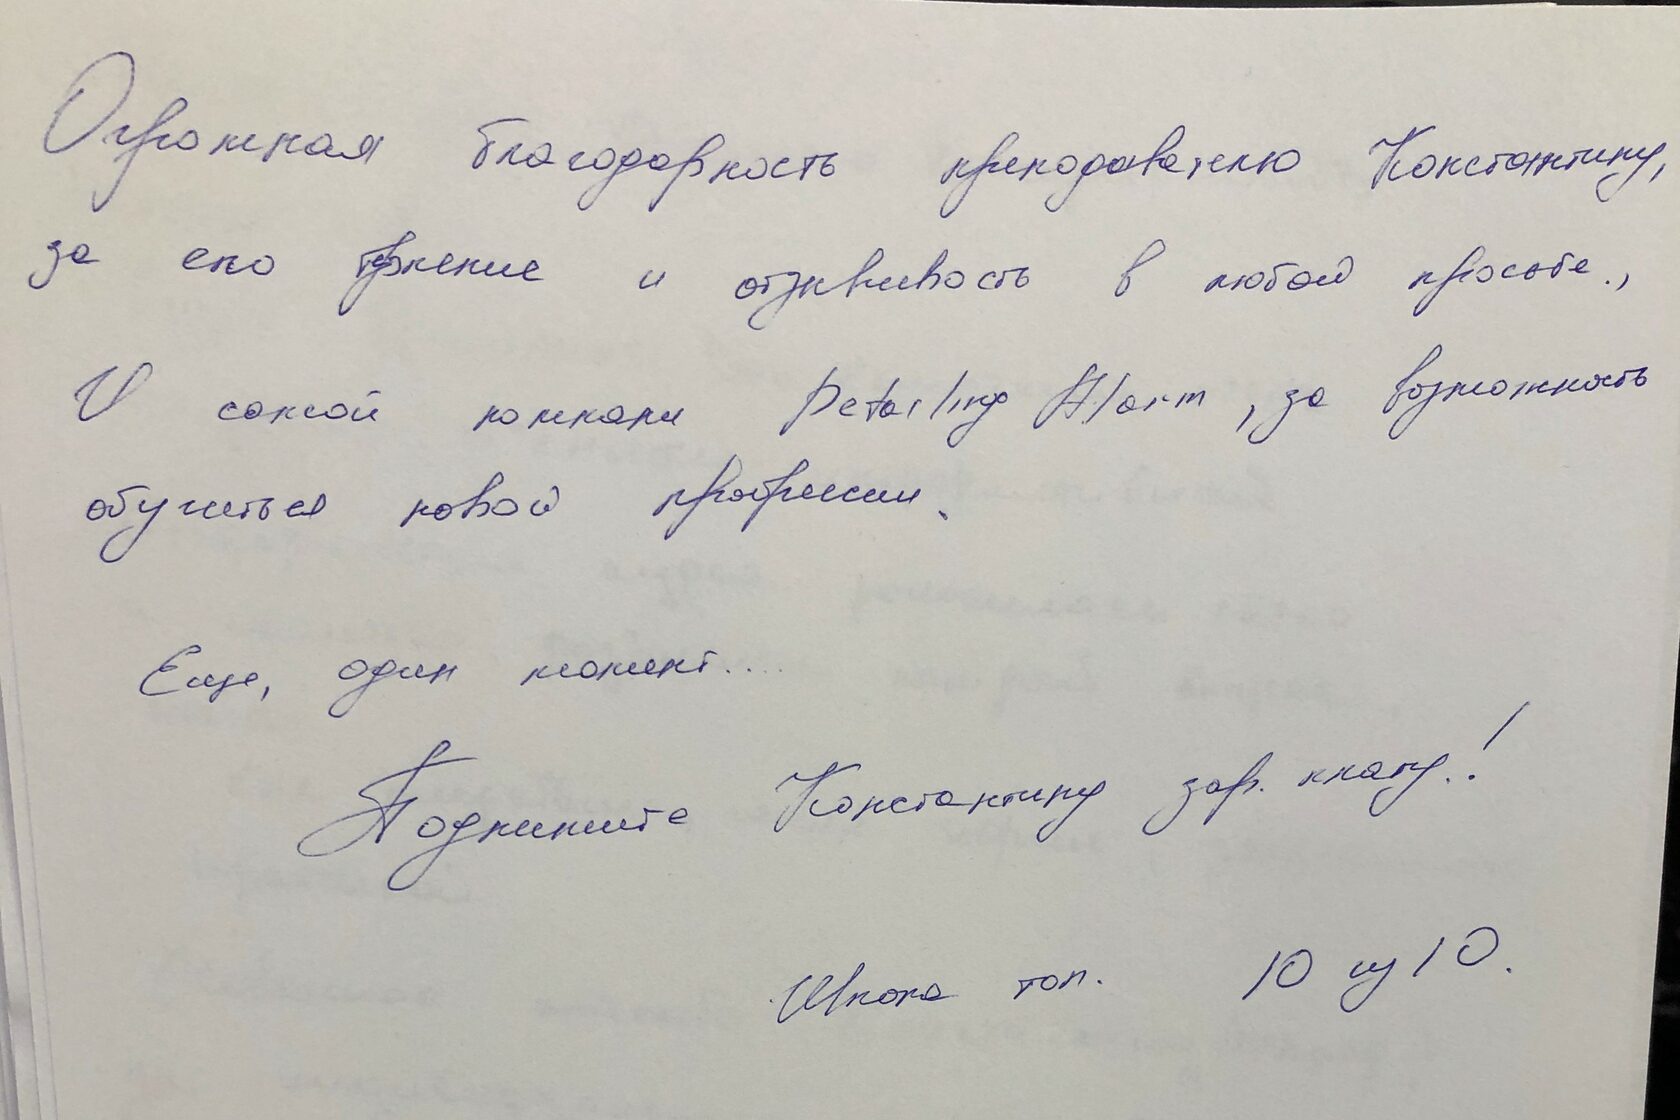 Огромная благодарность преподавателю Константину,
за его терпение и отзывчивость в любой просьбе.,
И самой компани Detailing Alarm, за возможность
обучиться новой профессии.
Еще, один момент....
Поднимите Константину зар. плату.!
Школа топ. 10 из 10.